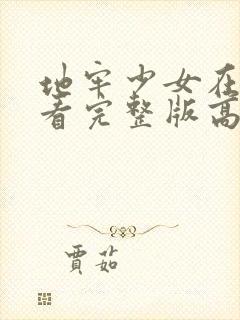 地牢少女在
看完整版高
賈茹